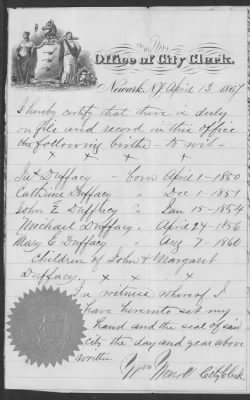 Office of City Clerk.
Newark. N.J. April 13. 1867
I hereby certify that there is duly
on file and record in this office
the following births - to wit -
x x x x
Jas Duffacy - born April 1 - 1850
Cathrine Duffacy " Dec 1 - 1851
John E Duffacy " Jan 15 - 1854
Michael Duffacy. " April 24 - 1856
Mary C Duffacy " Aug 7 - 1860
Children of John & Margaret
Duffacy. x x x
In witness whereof I
have hereunto set my
hand and the seal of said
city the day and year above
written
City Clerk